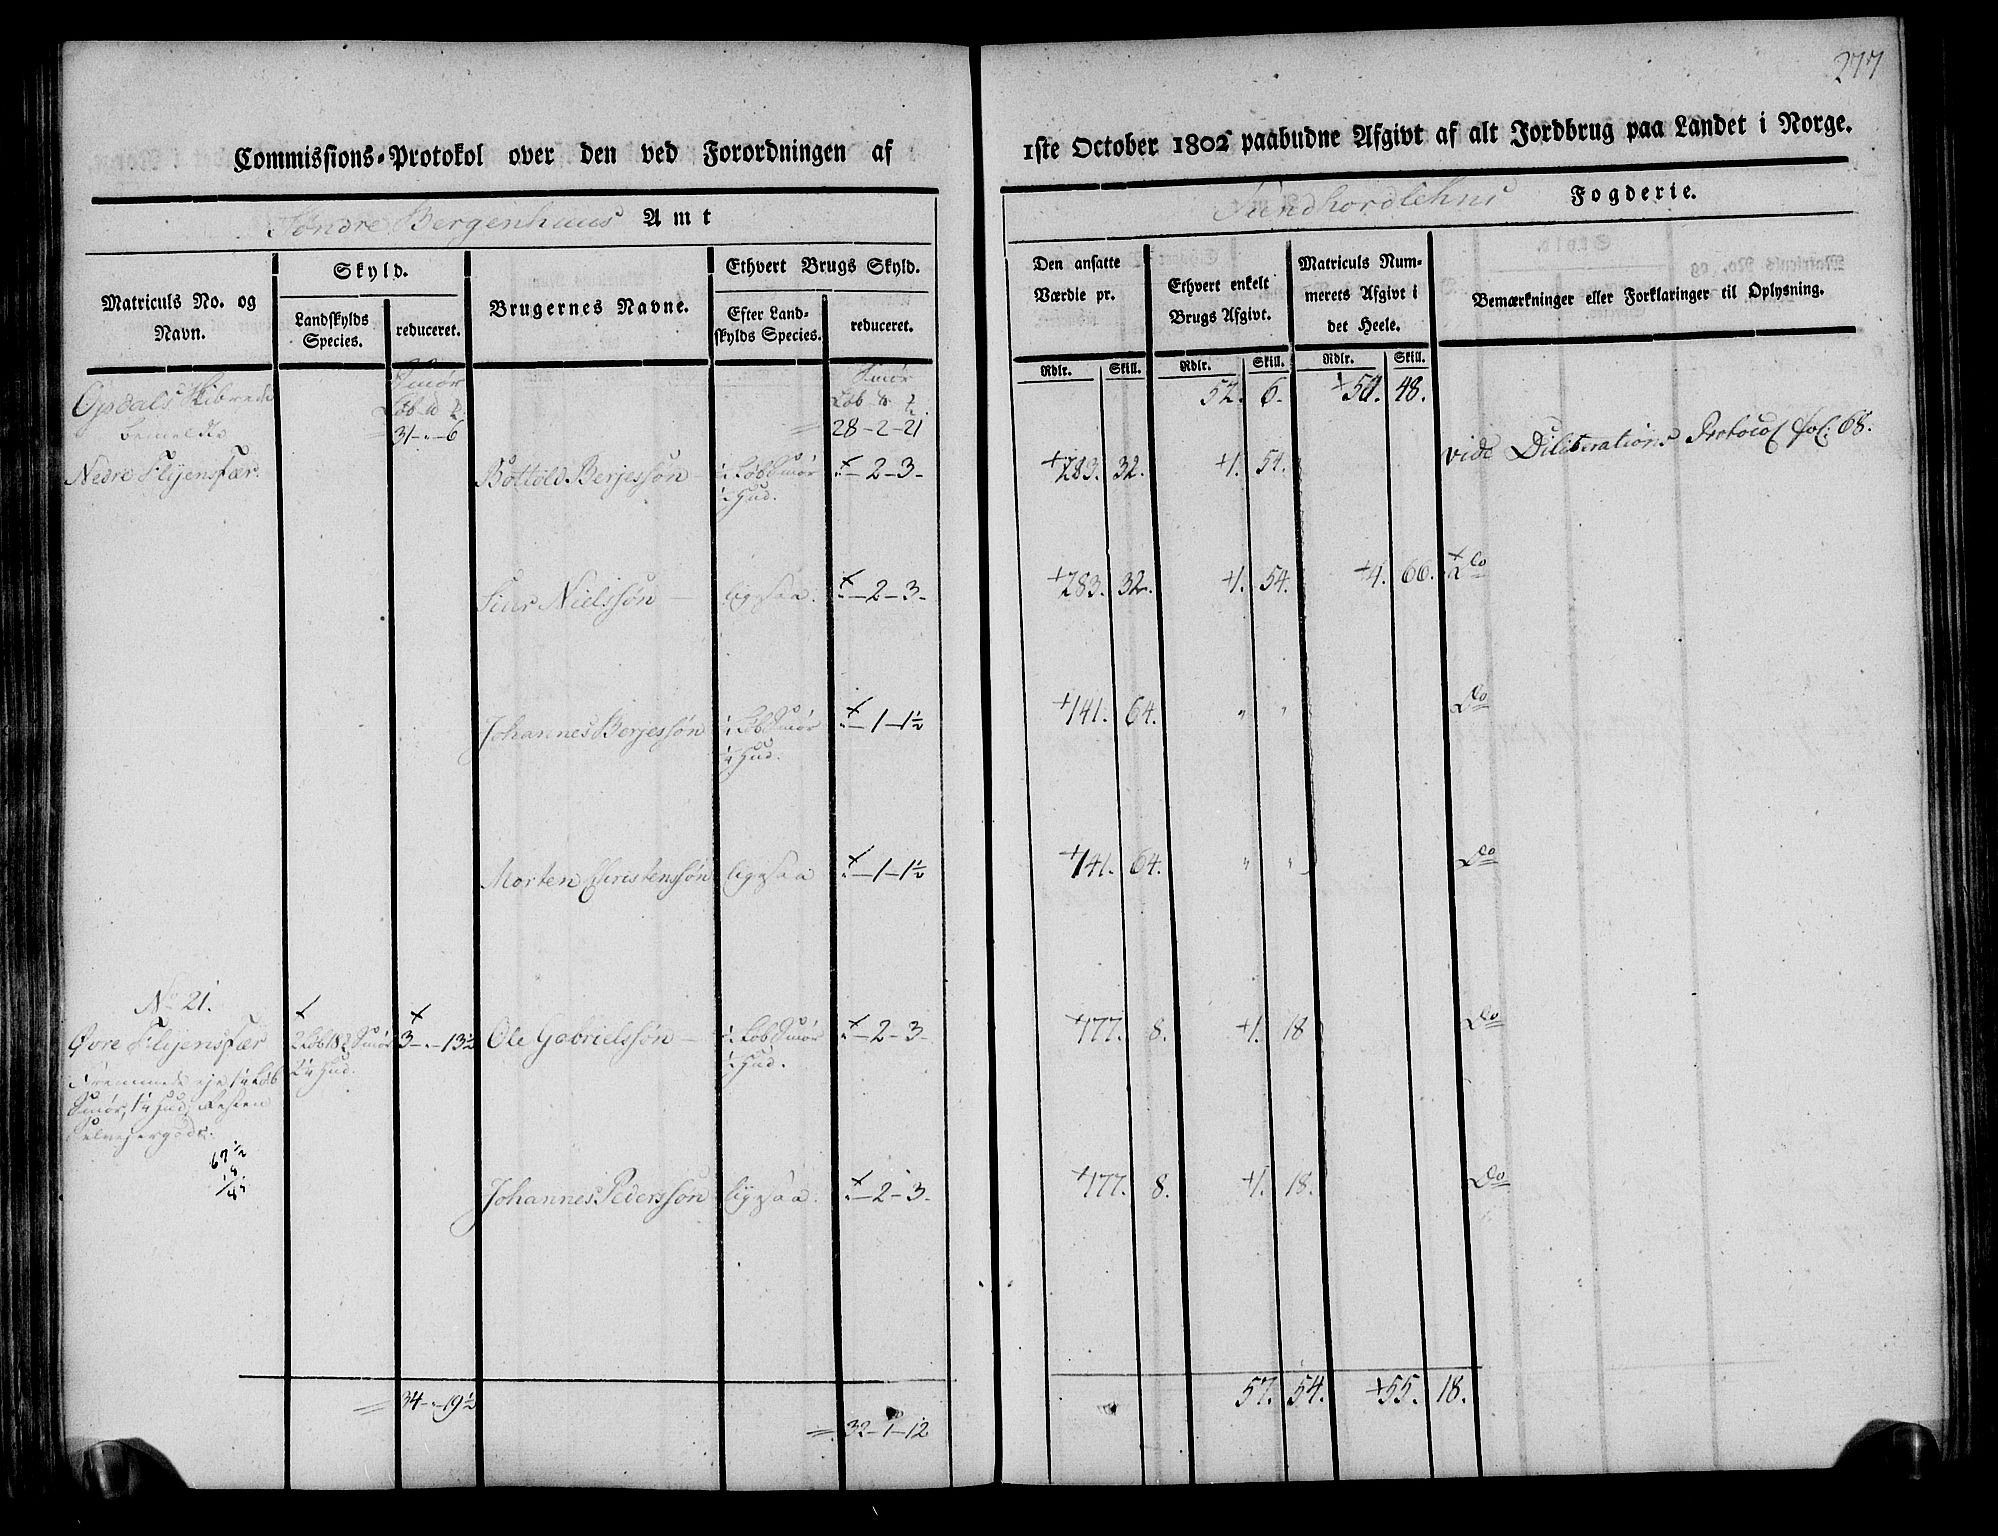 277
Commissions-Protokol over den ved Forordningen af 1ste October 1802 paabudne Afgivt af alt Jordbrug paa Landet i Norge.
Søndre Bergenhuus Amt
Sundhordlehns Fogderie.
Matriculs No. og Navn.
Skyld.
Landskylds Species.
reduceret.
Brugernes Navne.
Ethvert Brugs Skyld.
Efter Landskylds Species.
reduceret.
Den ansatte Værdie pr.
Ethvert enkelt Brugs Afgivt.
Matriculs Nummerets Afgivt i det Heele.
Bemærkninger eller Forklaringer til Oplysning.
Rdlr. Skill. Rdlr. Skill. Rdlr. Skill.
Opdals Skibrede Smør Smør 52. 6. 50. 48.
bemeldte 31-"-6 28-2-21
vide Protocol fol: 68.
Nedre Bottold Berjessøn - Løb Smør "-2-3- 283. 32. 1. 54.
Hud.
Siur Nielssøn - ligesaa. "-2-3- 283. 32. 1. 54. 4. 66. Do
Johannes Berjessøn Løb Smør "-1-1½ 141. 64. " " Do
Hud.
Morten Christenssøn ligesaa "-1-1½ 141. 64. " " Do
No 21.
Øvre 2 Løb 18 Smør 3-"-13½ Ole Gabrielssøn - Løb Smør "-2-3- 177. 8. 1. 18 Do
Fremmede eje Løb Hud. Hud.
Smør, Hud, Resten
Selvejergods.
67½
18
Johannes Pederssøn ligesaa. "-2-3- 177. 8. 1. 18. Do
34-"-19½ 32-1-12 57. 54. 55. 18.